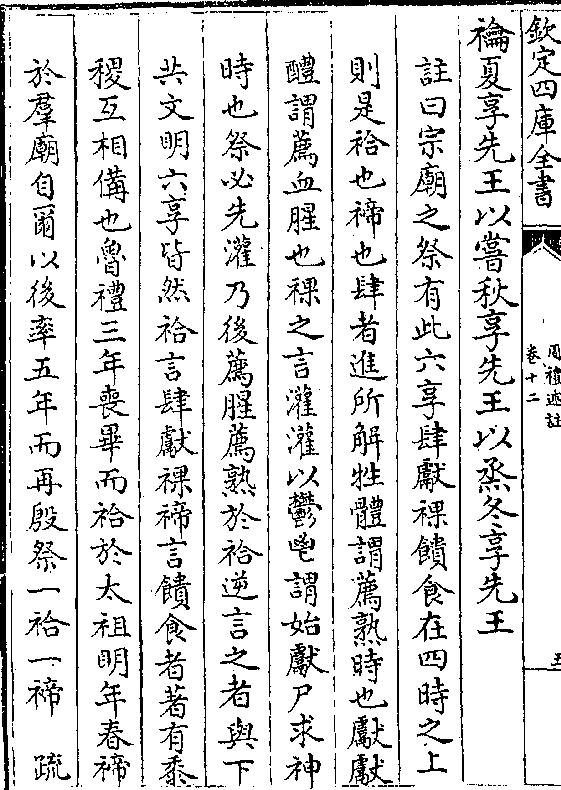 欽定四庫全書
周禮述註
卷十二
五
禴夏享先王以嘗秋享先王以烝冬享先王
註曰宗廟之祭有此六享肆獻祼饋食在四時之上
則是祫也禘也肆者進所解牲體謂薦熟時也獻獻
醴謂薦血腥也祼之言灌灌以鬱鬯謂始獻尸求神
時也祭必先灌乃後薦腥薦熟於祫逆言之者與下
共文明六享皆然祫言肆獻祼禘言饋食者著有黍
稷互相備也魯禮三年喪畢而祫於太祖明年春禘
於羣廟自爾以後率五年而再殷祭一祫一禘　疏